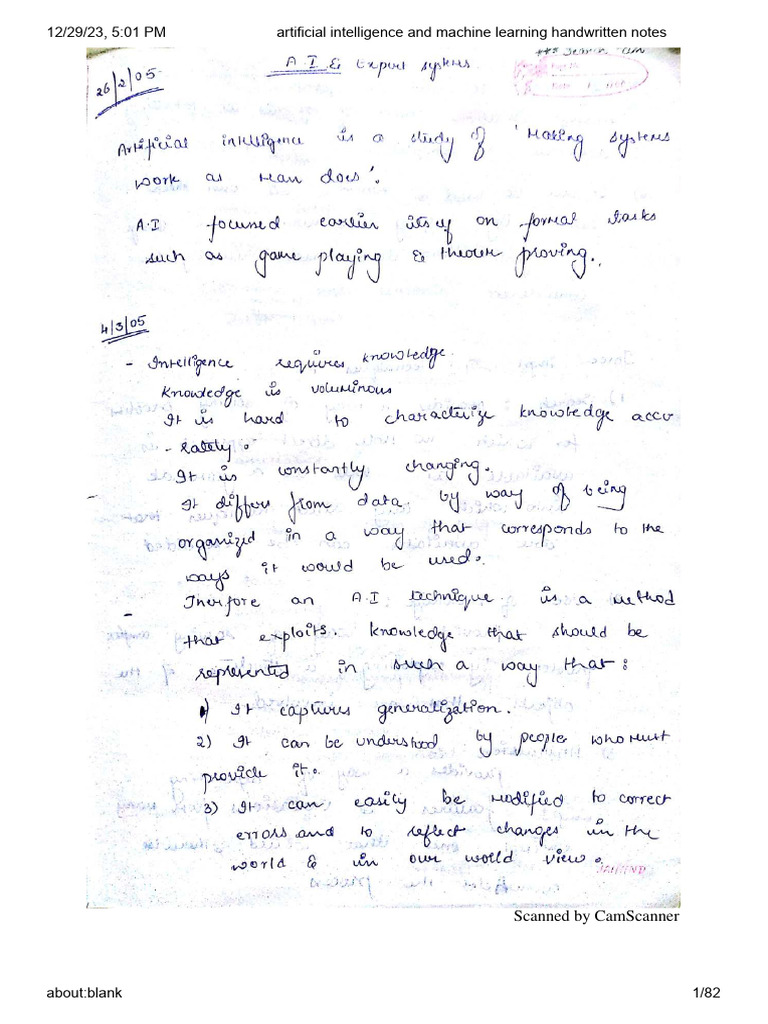 12/29/23, 5:01 PM artificial intelligence and machine learning handwritten notes
A.I & Expert systems.
26/2/05
Artificial intelligence is a study of 'Making systems
work as man does'.
A.I focused earlier itself on formal tasks
such as game playing & theorem proving.
4/3/05
- Intelligence requires knowledge.
Knowledge is voluminous
It is hard to characterize knowledge accu
- rately.
It is constantly changing.
It differs from data by way of being
organized in a way that corresponds to the
ways it would be used.
- Therefore an A.I technique is a method
that exploits knowledge that should be
represented in such a way that:
1) It captures generalization.
2) It can be understood by people who must
provide it.
3) It can easily be modified to correct
errors and to reflect changes in the
world & in our world view.
Scanned by CamScanner
about:blank 1/82